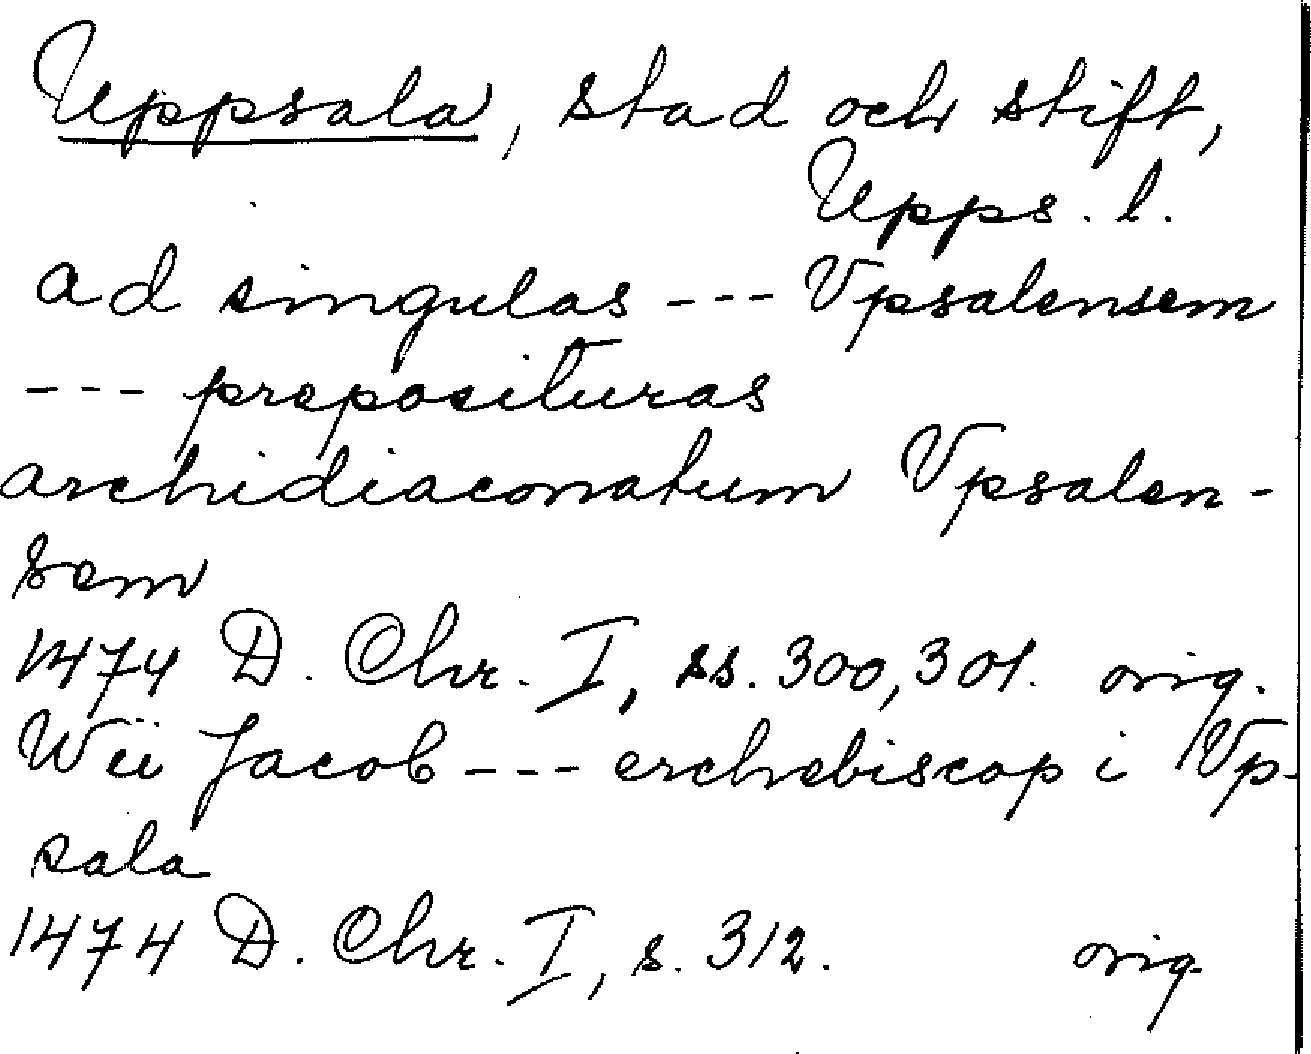 Uppsala, stad och stift,
Upps. l.
ad singulas --- Vpsalensem
--- preposituras
archidiaconatum Vpsalen-
sem
1474 D. Chr. I, ss. 300, 301. orig.
Wii Jacob --- erchebiscop i Vp-
sala
1474 D. Chr. I, s. 312. orig.